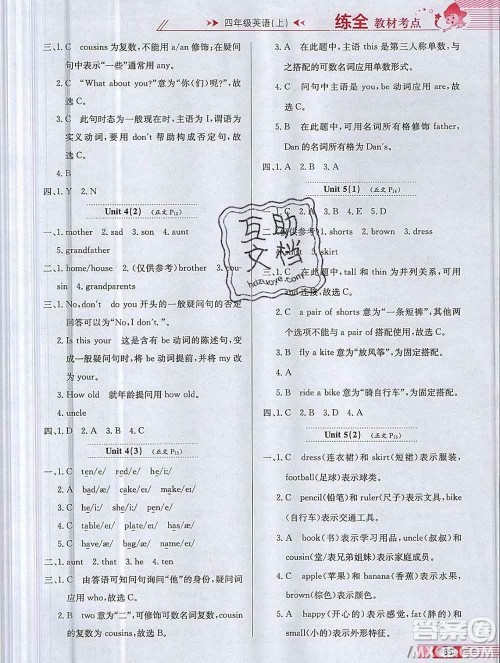 四年级英语(上)
练全
教材考点
三、1. C cousins 为复数，不能用 a/an 修饰；在疑问
句中表示“一些”通常用 any。
2. C “What about you?”意为“你(们)呢?”，故
选 C。
3. C 此句时态为一般现在时，主语为 I，谓语为
实义动词，要用 don't 帮助构成否定句，故
选 C。
四、1. Y 2. N
Unit 4(2) (正文 P12)
一、1. mother 2. sad 3. son 4. aunt
5. grandfather
二、1. home/house 2. (仅供参考) brother 3. cous-
in 4. grandparents
三、1. No, don't do 开头的一般疑问句的否定
回答可以为“No, I don't”。
2. Is this your 这是含有 be 动词的陈述句，变
成一般疑问句时，将 be 动词提前，并将 my
改为 your。
3. How old 就年龄提问用 how old。
4. uncle
四、1. D 2. B 3. C 4. A
Unit 4(3) (正文 P13)
一、1. C ten/e/ red/e/ he/iː/
2. A bag/æ/ cap/æ/ plate/eɪ/
3. C he/iː/ she/iː/ hen/e/
4. C table/eɪ/ name/eɪ/ map/æ/
5. C cake/eɪ/ make/eɪ/ and/æ/
二、1. aunt 2. son 3. have
三、1. C 由答语可知问句询问“他”的身份，疑问词
应用 who。
2. B two 意为“二”，可修饰可数名词复数，cousin
的复数为 cousins，故选 B。
3. A 在此题中，主语 this 是第三人称单数，与
之搭配的可数名词应用单数形式。
4. C 问句中主语是 you，be 动词应用 are，故
选 C。
5. C 在此题中，可用名词所有格修饰 father，
Dan 的名词所有格为 Dan's。
四、1. A 2. B 3. A
Unit 5(1) (正文 P14)
一、1. C 2. B 3. A 4. D
二、(仅供参考) 1. shorts 2. brown 3. dress
4. under 5. skirt
三、1. C 在此题中，tall 和 thin 为并列关系，可用
and 连接，故选 C。
2. C a pair of shorts 意为“一条短裤”，其余两
个选项前面如果不与其他词搭配，则不能
与 a pair of 搭配使用，故选 C。
3. B fly a kite 意为“放风筝”，为固定搭配。
4. A
5. B ride a bike 意为“骑自行车”，为固定搭配。
四、1. C 2. D 3. B 4. A
Unit 5(2) (正文 P15)
一、1. C dress(连衣裙)和 skirt(短裙)表示服装，
football(足球)表示球类。
2. C pencil(铅笔)和 ruler(尺子)表示文具，bike
(自行车)表示交通工具。
3. A book(书)表示学习用品，uncle(叔叔)和
cousin(堂/表兄弟姐妹)表示家庭成员。
4. B apple(苹果)和 banana(香蕉)表示水果，
shirt(衬衫)表示服装。
5. A happy(开心的)表示心情，fat(胖的)和
small(小的)表示外形特征。
互助
文档
huzuoye.com
答案圈
MXQE.COM